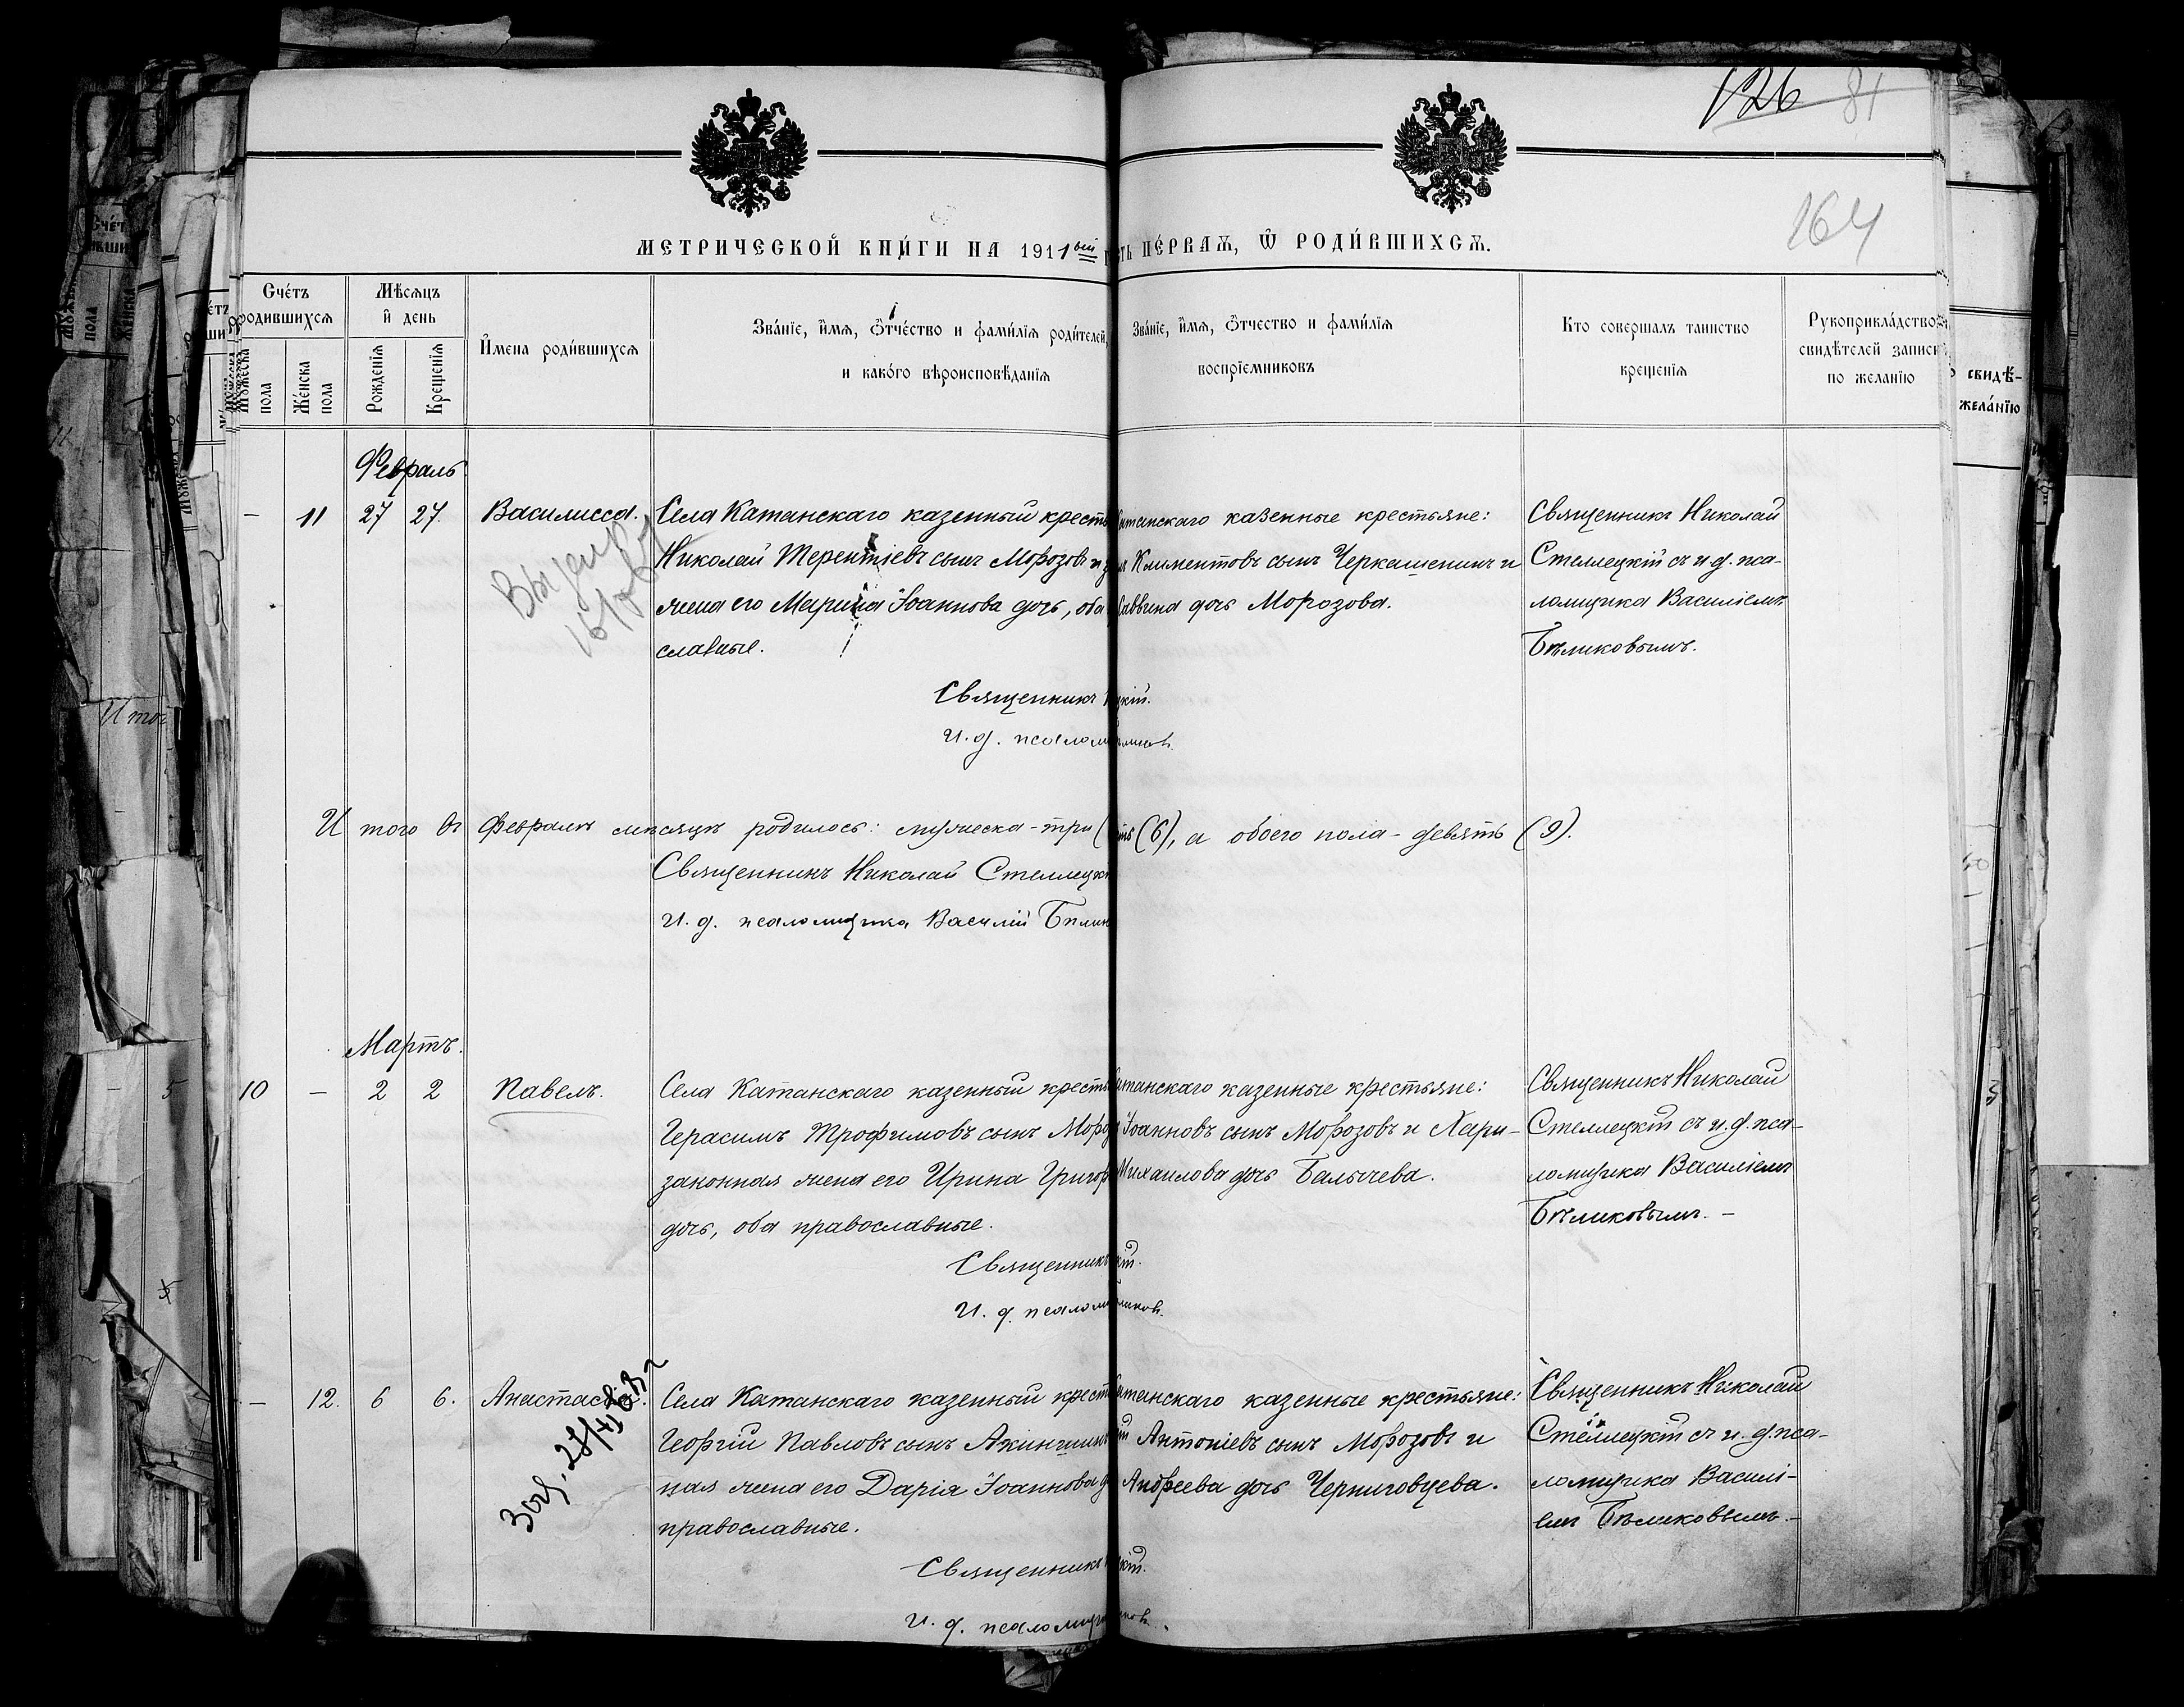 126 81
164
МЕТРИЧЕСКОЙ КНИ́ГИ НА 1911ый
ПЕ́РВАѦ, Ѿ РОДИ́ВШИХСѦ.
Сче́тъ родившихсѧ
Мѣсѧцъ и день
Мꙋжеска пола
Же́нска пола
Рожде́нїѧ
Креще́нїѧ
Имена роди́вшихсѧ
Зва́нїе, и́мѧ, ѻ҆́тчество и фами́лїѧ роди́телей,
и како́го вѣроисповѣ́данїѧ
Зва́нїе, и́мѧ, ѻ҆́тчество и фами́лїѧ
воспрїе́мниковъ
Кто соверша́лъ таинство
креще́нїѧ
Рукоприкла́дство
свидѣ́телей запис
по жела́нїю
Февраль
— 11 27 27. Василисса. Села Катанскаго казенный кресть
Николай Терентіевъ сынъ Морозовъ и з
жена его Марина Іоаннова дочь, оба
славные.
Священникъ
И. д. псалом
танскаго казенные крестьяне:
Климентовъ сынъ Черкашенинъ и
Саввина дочь Морозова.
Священникъ Николай
Стеллецкій съ и. д. пса-
ломщика Василіемъ
Бѣликовымъ.
И того въ Февралѣ мѣсяцѣ родилось: мужеска - три (
(6), а обоего пола - девять (9).
Священникъ Николай Стеллецкі
И. д. псаломщика Василій Бѣлик
Мартъ.
10 — 2 2 Павелъ. Села Катанскаго казенный кресть
Герасимъ Трофимовъ сынъ Мороз
законная жена его Ирина Григор
дочь, оба православные.
Священникъ
И. д. псалом
танскаго казенные крестьяне:
Іоанновъ сынъ Морозовъ и Хари-
Михаилова дочь Балычева.
Священникъ Николай
Стеллецкій съ и. д. пса-
ломщика Василіемъ
Бѣликовымъ. —
— 12. 6 6. Анастасія. Села Катанскаго казенный крест
Георгій Павловъ сынъ Акиншинъ
ная жена его Дарія Іоаннова д
православные.
Священникъ
И. д. псаломщи
танскаго казенные крестьяне:
Антоніевъ сынъ Морозовъ и
Андреева дочь Черниговцева.
Священникъ Николай
Стеллецкій съ и. д. пса-
ломщика Василі-
емъ Бѣликовымъ. —